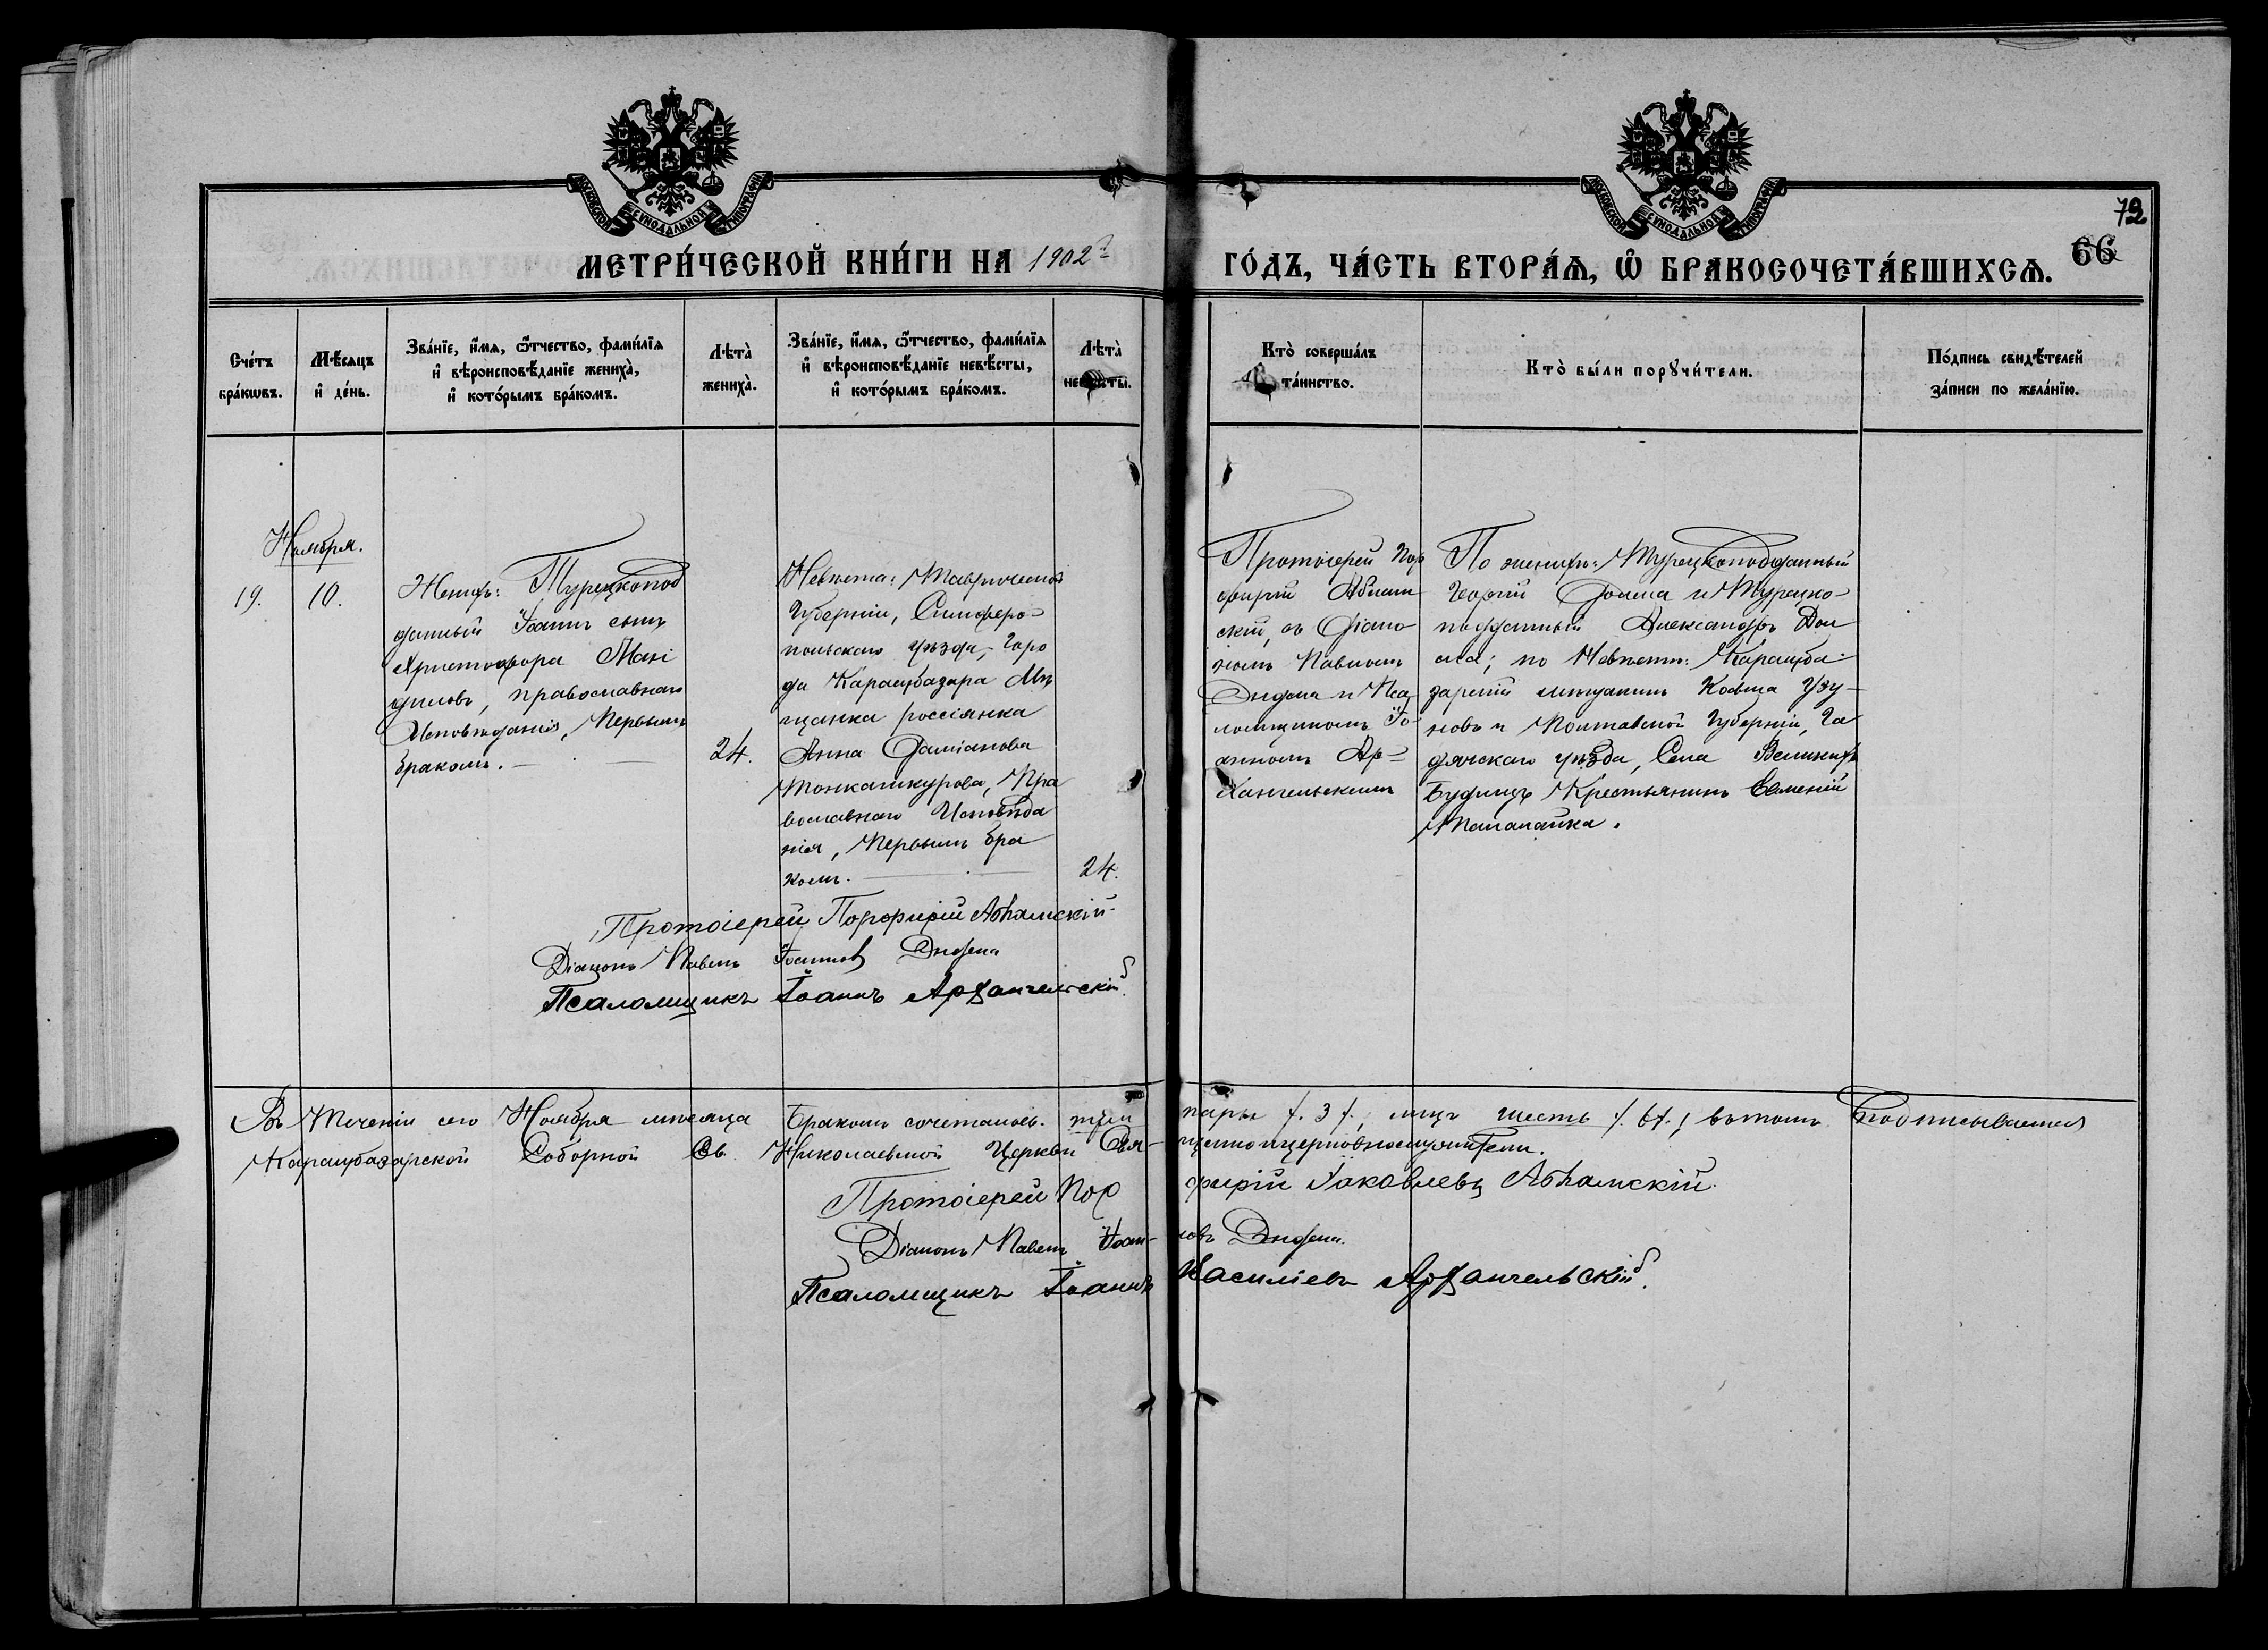 МОСКОВСКОЙ СУНОДАЛЬНОЙ ТИПОГРАФІИ
МОСКОВСКОЙ СУНОДАЛЬНОЙ ТИПОГРАФІИ
72
66
МЕТРИ́ЧЕСКОЙ КНИ́ГИ НА 1902 ГО́ДЪ, ЧА́СТЬ ВТОРА́Ѧ, Ѽ БРАКОСОЧЕТА́ВШИХСѦ.
Сче́тъ
бра́кѡвъ.
Мѣ́сяцъ
и҆ де́нь.
Зва́нїе, и҆́мя, ѻ҆́тчество, фами́лїя
и҆ вѣроисповѣ́данїе жениха̀,
и҆ кото́рымъ бра́комъ.
Лѣта̀
жениха̀.
Зва́нїе, и҆́мя, ѻ҆́тчество, фами́лїя
и҆ вѣроисповѣ́данїе невѣ́сты,
и҆ кото́рымъ бра́комъ.
Лѣта̀
невѣ́сты.
Кто̀ соверша́лъ
та́инство.
Кто̀ бы́ли порꙋчи́тели.
По́дпись свидѣ́телей
за́писи по жела́нїю.
Ноября.
19.
10.
Женихъ: Турецкопод
данный Іоаннъ сынъ
Христофора
православнаго
Исповѣданія, Первымъ
бракомъ.
24.
Невѣста: Таврической
Губерніи, Симферо-
польскаго уѣзда, Горо
да Карасубазара Мѣ
щанка россіянка
Анна Даміанова
Тонкошкурова, Пра
вославнаго Исповѣда
нія, Первымъ бра
комъ.
24.
Протоіерей Пор
фирій Абхам
скій, съ Діако
номъ Павломъ
и Пса
ломщикомъ Іо
анномъ Ар=
хангельскимъ
По женихѣ: Турецкоподданный
Георгій и Турецко-
подданный Александръ
по Невѣстѣ: Карасуба-
зарскій мѣщанинъ Косьма Узу-
новъ и Полтавской Губерніи, Га
дячскаго уѣзда, Села Великихъ
Будищъ Крестьянинъ Евменій

Протоіерей Порфирій Абхамскій
Діаконъ Павелъ Іоанновъ
Псаломщикъ Іоаннъ Архангельскій.
Въ Теченіи сего Ноября мѣсяца Бракомъ сочеталось три пары /.3/., лицъ шесть /.6/.; въ томъ подписываемся
Карасубазарской Соборной Св. Николаевской Церкви Свя-щенноцерковнослужители.
Протоіерей Пор фирій Іаковлевъ Абхамскій.
Діаконъ Павелъ Іоан-новъ
Псаломщикъ Іоаннъ Василіевъ Архангельскій.